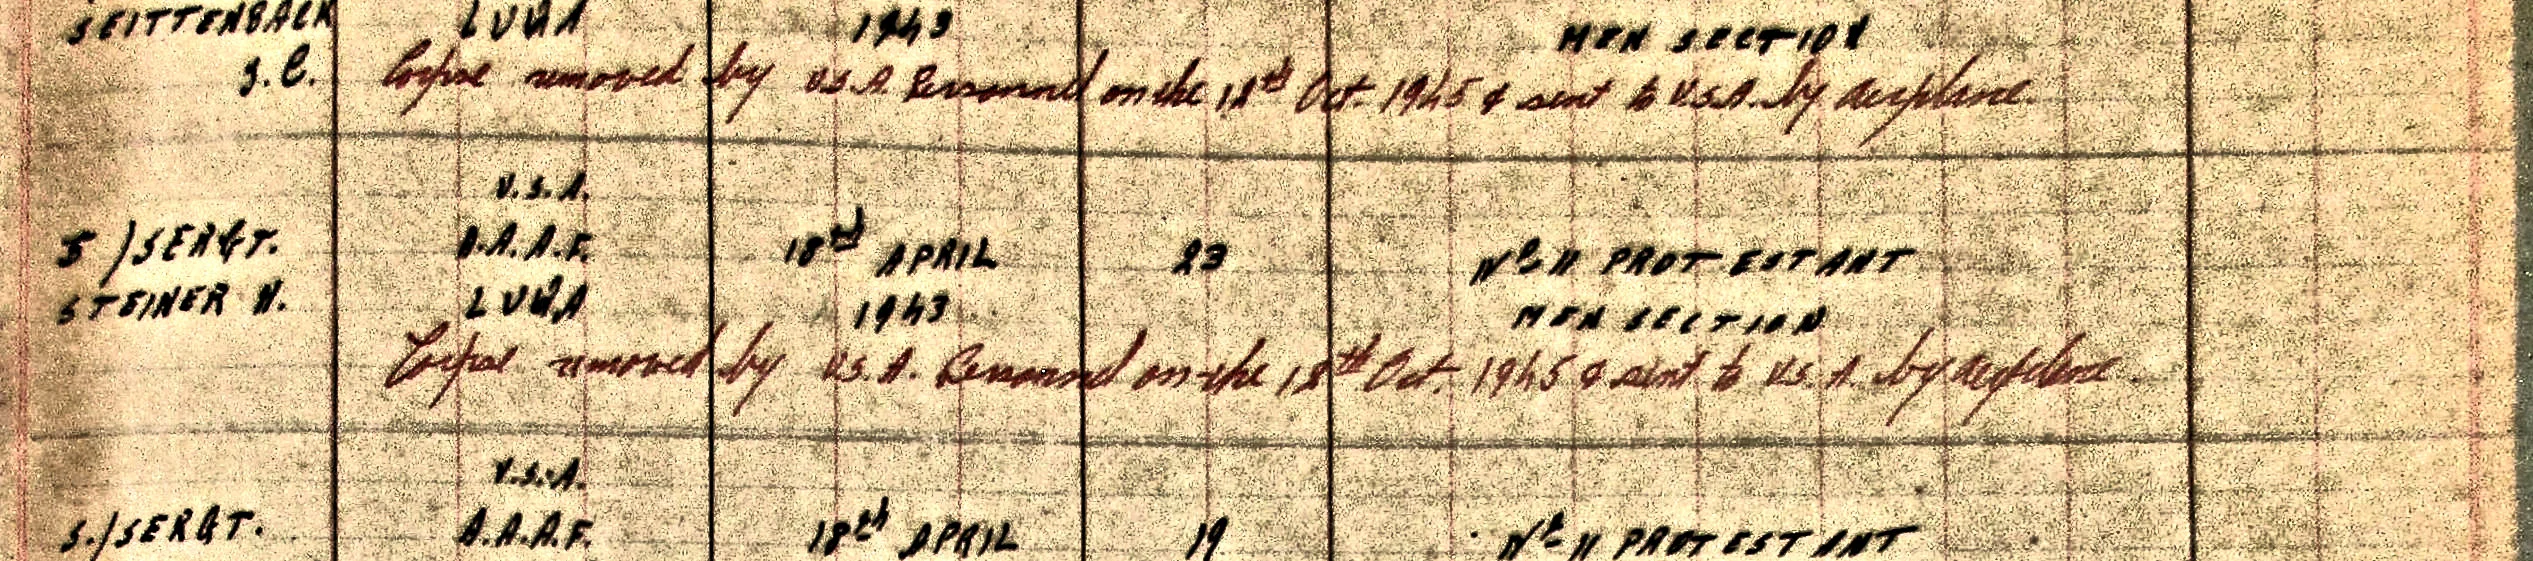 SEITTENBACK LUQA 1943 MEN SECTION
J.C. Corpse removed by U.S.A. Personnel on the 18th Oct. 1945 & sent to U.S.A. by aeroplane.
U.S.A.
S/SERGT. A.A.A.F. 18th APRIL 23 Nº-11 PROTESTANT
STEINER N. LUQA 1943 MEN SECTION
Corpse removed by U.S.A. Personnel on the 18th Oct. 1945 & sent to U.S.A. by aeroplane.
U.S.A.
S./SERGT. A.A.A.F. 18th APRIL 19 Nº-11 PROTESTANT